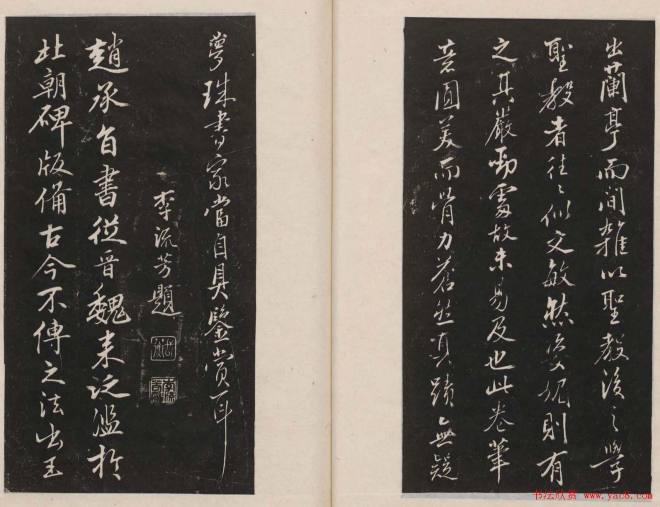 出蘭亭而間雜以聖教後之學
聖教者往〻似文敏然姿媚則有
之其嚴勁處故未易及也此卷筆
意圓美而骨力蒼然真蹟無疑
夢珠書家當自具鑒賞耳
李流芳題
趙承旨書從晉魏来泛濫於
北朝碑版備古今不傳之法出王
书法欣赏 www.yac8.com